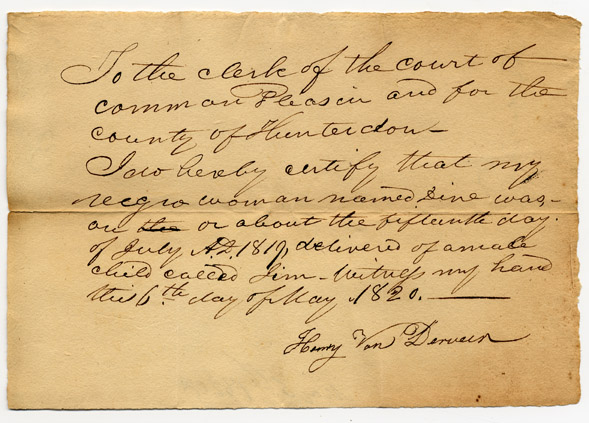 To the clerk of the court of
common Pleas in and for the
county of Hunterdon –
I do hereby certify that my
negro woman named Dine was –
on the or about the fifteenth day
of July A.D. 1819, delivered of a male
child called Jim – Witness my hand
this 6th day of May 1820. —
Henry Van Derveer